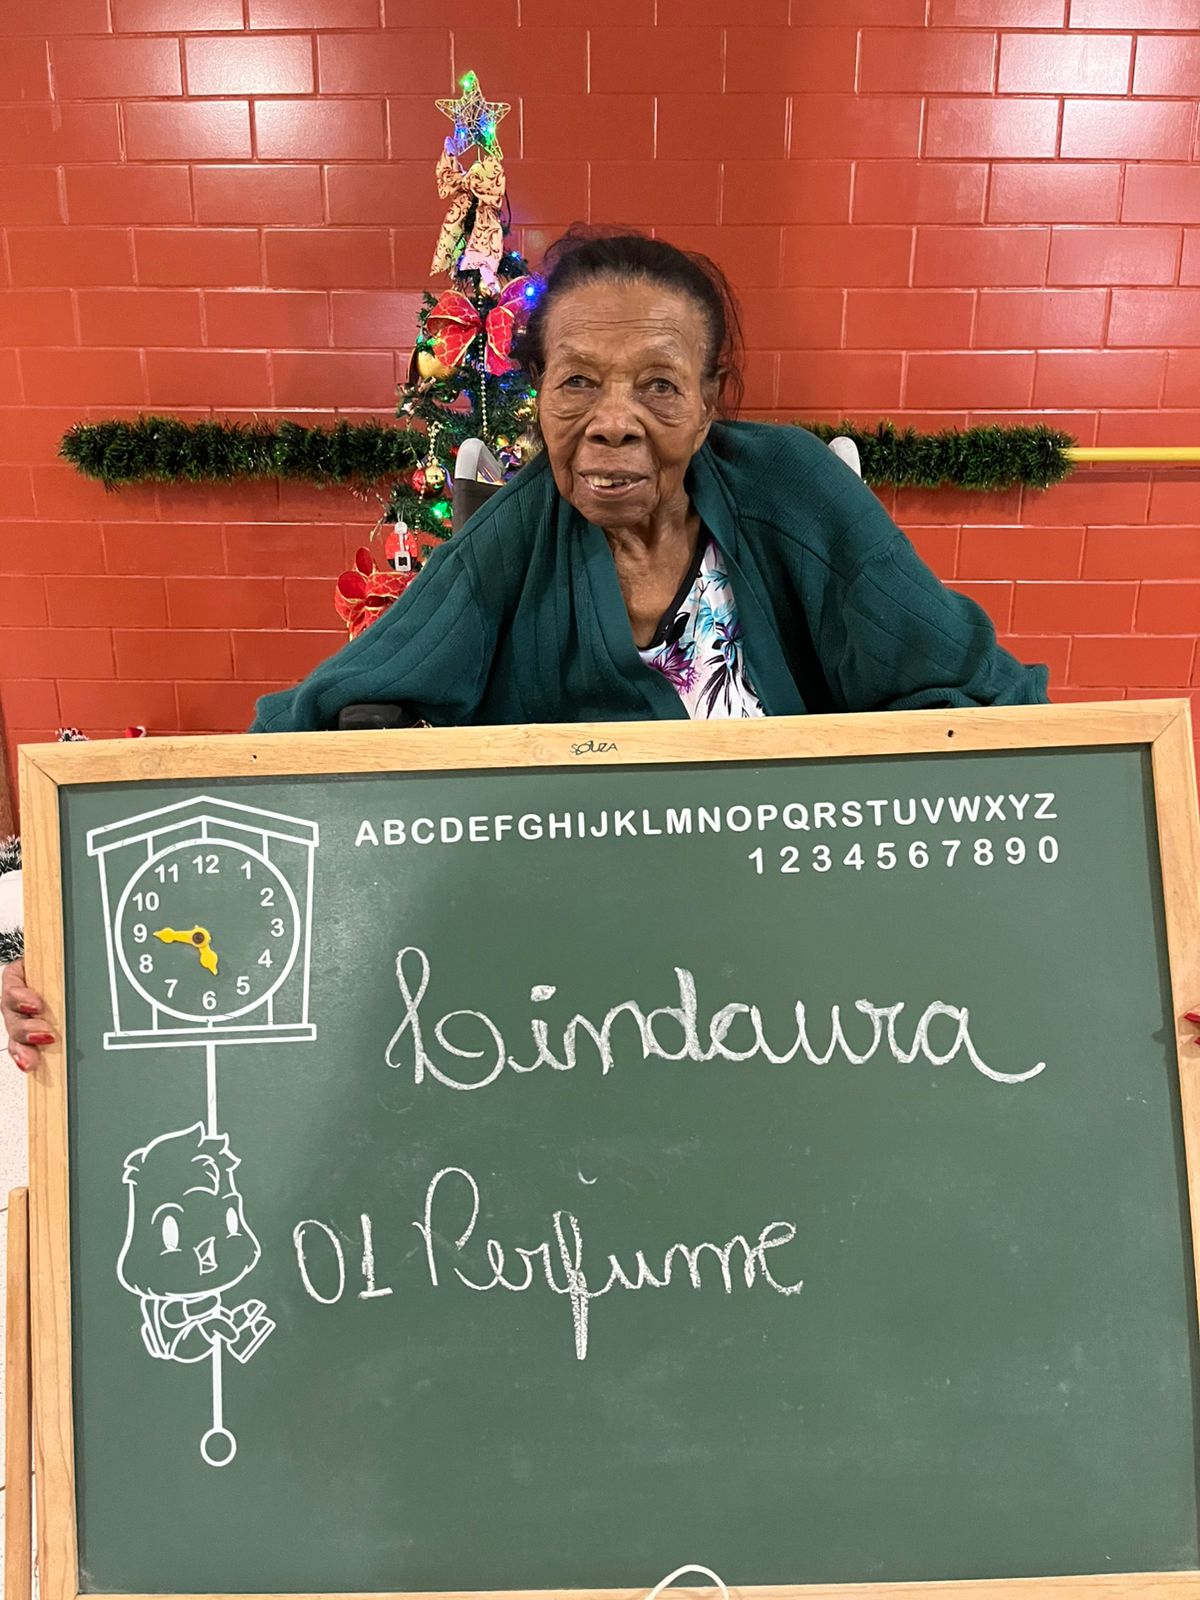 SOUZA
ABCDEFGHIJKLMNOPQRSTUVWXYZ
1234567890
12
11 1
10 2
9 3
8 4
7 5
6
Lindaura
01 Perfume